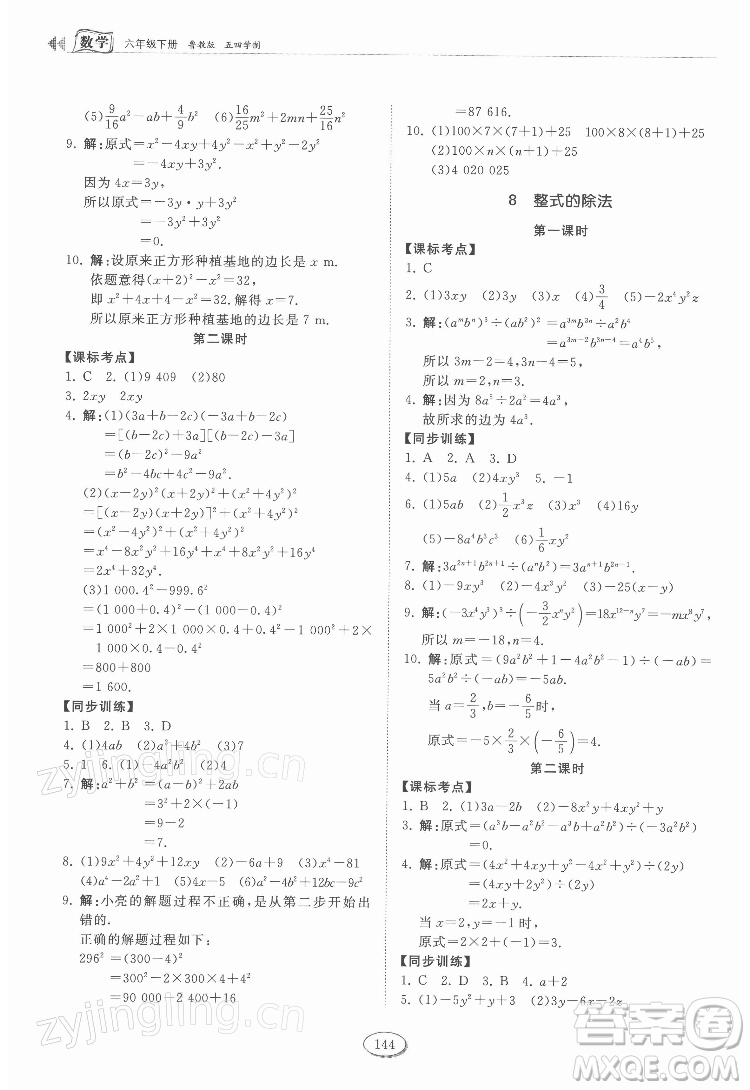 数学 六年级下册 鲁教版 五四学制
(5)9/16a²-ab+4/9 (6)16/25m²+2mn+25/16n²
9. 解:原式=x²-4xy+4y²-x²-y²
=-4xy+3y².
因为4x=3y,
所以原式=-3y·y+3y²
=-3y²+3y²
=0.
10. 解:设原来正方形种植基地的边长是x m.
依题意得(x+2)²-x²=32,
即x²+4x+4-x²=32.解得x=7.
所以原来正方形种植基地的边长是7 m.
第二课时
【课标考点】
1. C 2. (1)9 409 (2)80
3. 2xy 2xy
4. 解:(1)(3a+b-2c)(-3a+b-2c)
=[(b-2c)+3a][(b-2c)-3a]
=(b-2c)²-9a²
=b²-4bc+4c²-9a².
(2)(x-2y)²(x+2y)²+(x²+4y²)²
=[(x-2y)(x+2y)]²+(x²+4y²)²
=(x²-4y²)²+(x²+4y²)²
=x⁴-8x²y²+16y⁴+x⁴+8x²y²+16y⁴
=2x⁴+32y⁴.
(3)1 000.4²-999.6²
=(1 000+0.4)²-(1 000-0.4)²
=1 000²+2×1 000×0.4+0.4²-1 000²+2
×1 000×0.4-0.4²
=800+800
=1 600.
【同步训练】
1. B 2. B 3. D
4. (1)4ab (2)a²+4b² (3)7
5. 1 6. (1)-4 (2)4
7. 解:a²+b²=(a-b)²+2ab
=3²+2×(-1)
=9-2
=7.
8. (1)9x²+4y²+12xy (2)-6a+9 (3)x⁴-81
(4)a⁴-2a²+1 (5)4x (6)a²-4b²+12bc-9c²
9. 解:小亮的解题过程不正确,是从第二步开始出
错的.
正确的解题过程如下:
296²=(300-4)²
=300²-2×300×4+4²
=90 000-2 400+16
=87 616.
10. (1)100×7×(7+1)+25 100×8×(8+1)+25
(2)100×n×(n+1)+25
(3)4 020 025
8 整式的除法
第一课时
【课标考点】
1. C
2. (1)3xy (2)3y (3)x (4)3/4 (5)-8x²y²z
3. 解:(aᵐbⁿ)³÷(ab²)²=a³ᵐb³ⁿ÷a²b⁴
=a³ᵐ⁻²b³ⁿ⁻⁴=a⁴b⁵,
所以3m-2=4,3n-4=5,
所以m=2,n=3.
4. 解:因为8a⁵÷2a²=4a³,
故所求的边为4a³.
【同步训练】
1. A 2. A 3. D
4. (1)5a (2)4xy³ 5. -1
6. (1)5ab (2)1/2x³z (3)x³ (4)16y
(5)-8a⁴b⁵c³ (6)1/6xy²
7. 解:3a²ⁿ⁺¹b²ⁿ⁺¹÷(aⁿb²)=3aⁿ⁺¹b²ⁿ⁻¹.
8. (1)-9xy³ (2)-75a (3)(x-y)
9. 解:(-3x⁴y³)³÷(-3/2xⁿy²)=18x¹²⁻ⁿy⁷=-mx⁸y⁷,
所以m=-18,n=4.
10. 解:原式=(9a²b²-10ab+1+6ab-1)÷(-ab)=
5a²b²÷(-ab)=-5ab.
当a=2/3,b=-6/5时,
原式=-5×2/3×(-6/5)=4.
第二课时
【课标考点】
1. B 2. (1)3a-2b (2)-5x²+4xy²+x
3. 解:原式=(a³b-a³b²-a³b+a³b²)÷(a²b)
=0.
4. 解:原式=(4x²+4xy+y²-y²-4x²)÷(2y)
=(4xy)÷(2y)
=2x.
当x=1,y=-1时,
原式=2×1=2.
【同步训练】
1. C 2. D 3. C 4. a+2
5. (1)-5y²+2y+1 (2)-3x-5y-6
144
zyjingling.cn
zyjingling.cn
答案圈
MXQE.COM